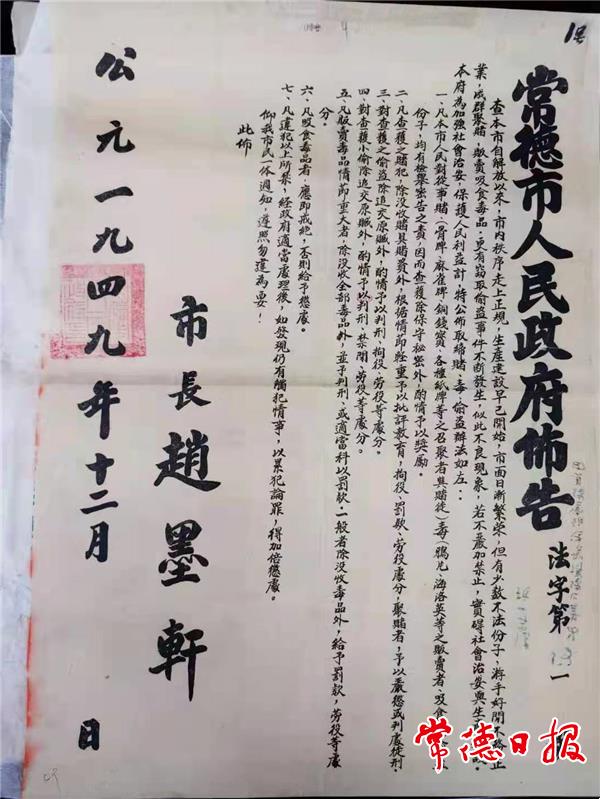 常德市人民政府佈告
法字第
一
查本市自解放以來，市内秩序走上正規，生産建設早已開始，市面日漸繁荣，但有少数不法份子，游手好閒不務正
業，成群聚賭，販賣吸食毒品，更有窃取偷盗事件不断發生，似此不良現象，若不嚴加禁止，實碍社會治安與生
本府為加強社會治安，保護人民利益計，特公佈取締賭、毒、偷盗辦法如左：
一、凡本市人民對從事賭（骨牌、麻雀牌、銅錢寳、各種紙牌等之召聚者與賭徒）毒（鴉片、海洛英等之販賣者、吸食
份子，均有檢舉密告之責，因而查獲除保守秘密外，酌情予以奬勵。
二、凡查獲之賭犯，除没收賭具賭資外，根据情節輕重予以批評教育，拘役、罰欵、劳役處分，聚賭者，予以嚴懲或判處徒刑。
三、對查獲之偷盗除追交原贓外，酌情予以判刑、拘役、劳役等處分。
四、對查獲小偷除追交原贓外，酌情予以判刑、禁閉、劳役等處分。
五、凡販賣毒品情節重大者，除没收全部毒品外，並予判刑，或適當科以罰欵，一般者除没收毒品外，給予罰欵，劳役等處
分。
六、凡吸食毒品者，應即戒絶，否則給予懲處。
七、凡違犯以上所禁，經政府適當處理後，如發現仍有觸犯情事，以累犯論罪，得加倍懲處。
仰我市民一体週知，遵照勿違為要！
此佈
市長趙墨軒
公元一九四九年十二月
日
常德日报